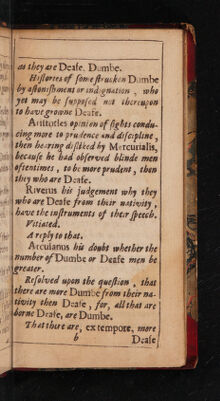 as they are Deafe. Dumbe.
Histories of some strucken Dumbe
by astonishment or indignation, who
yet may be supposed not thereupon
to have growne Deafe.
Aristotles opinion of sights condu-
cing more to prudence and discipline,
then hearing disliked by Mercurialis,
because he had observed blinde men
oftentimes, to be more prudent, then
they who are Deafe.
Riverius his judgement why they
who are Deafe from their nativity,
have the instruments of their speech.
Vitiated.
A reply to that.
Arculanus his doubt whether the
number of Dumbe or Deafe men be
greater.
Resolved upon the question, that
there are more Dumbe from their na-
tivity then Deafe, for, all that are
borne Deafe, are Dumbe.
That there are, ex tempore, more
b Deafe